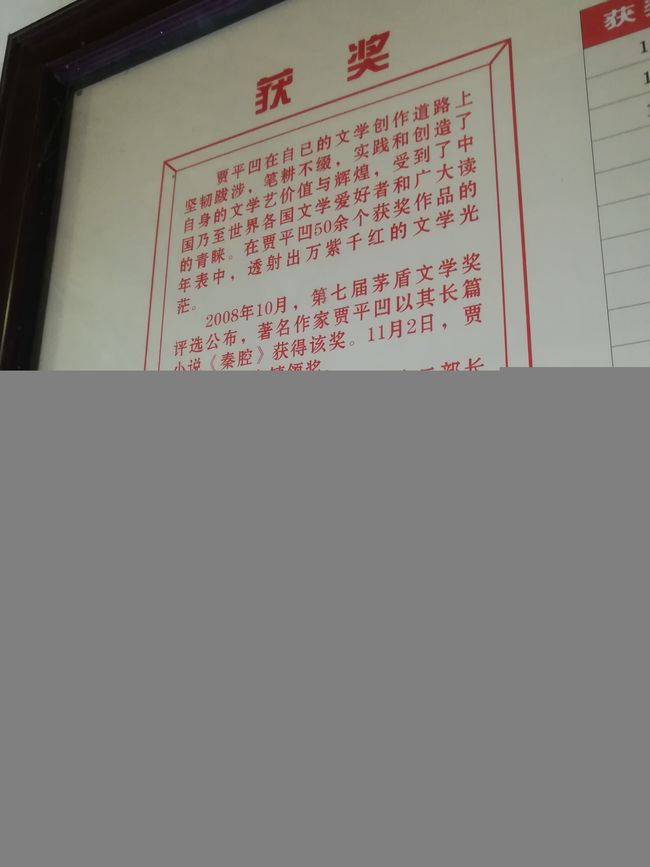 获奖
贾平凹在自己的文学创作道路上
坚韧跋涉，笔耕不缀，实践和创造了
自身的文学艺价值与辉煌，受到了中
国乃至世界各国文学爱好者和广大读
的青睐。在贾平凹50余个获奖作品的
年表中，透射出万紫千红的文学光
茫。
2008年10月，第七届茅盾文学奖
评选公布，著名作家贾平凹以其长篇
小说《秦腔》获得该奖。11月2日，贾
部长
获
1
1